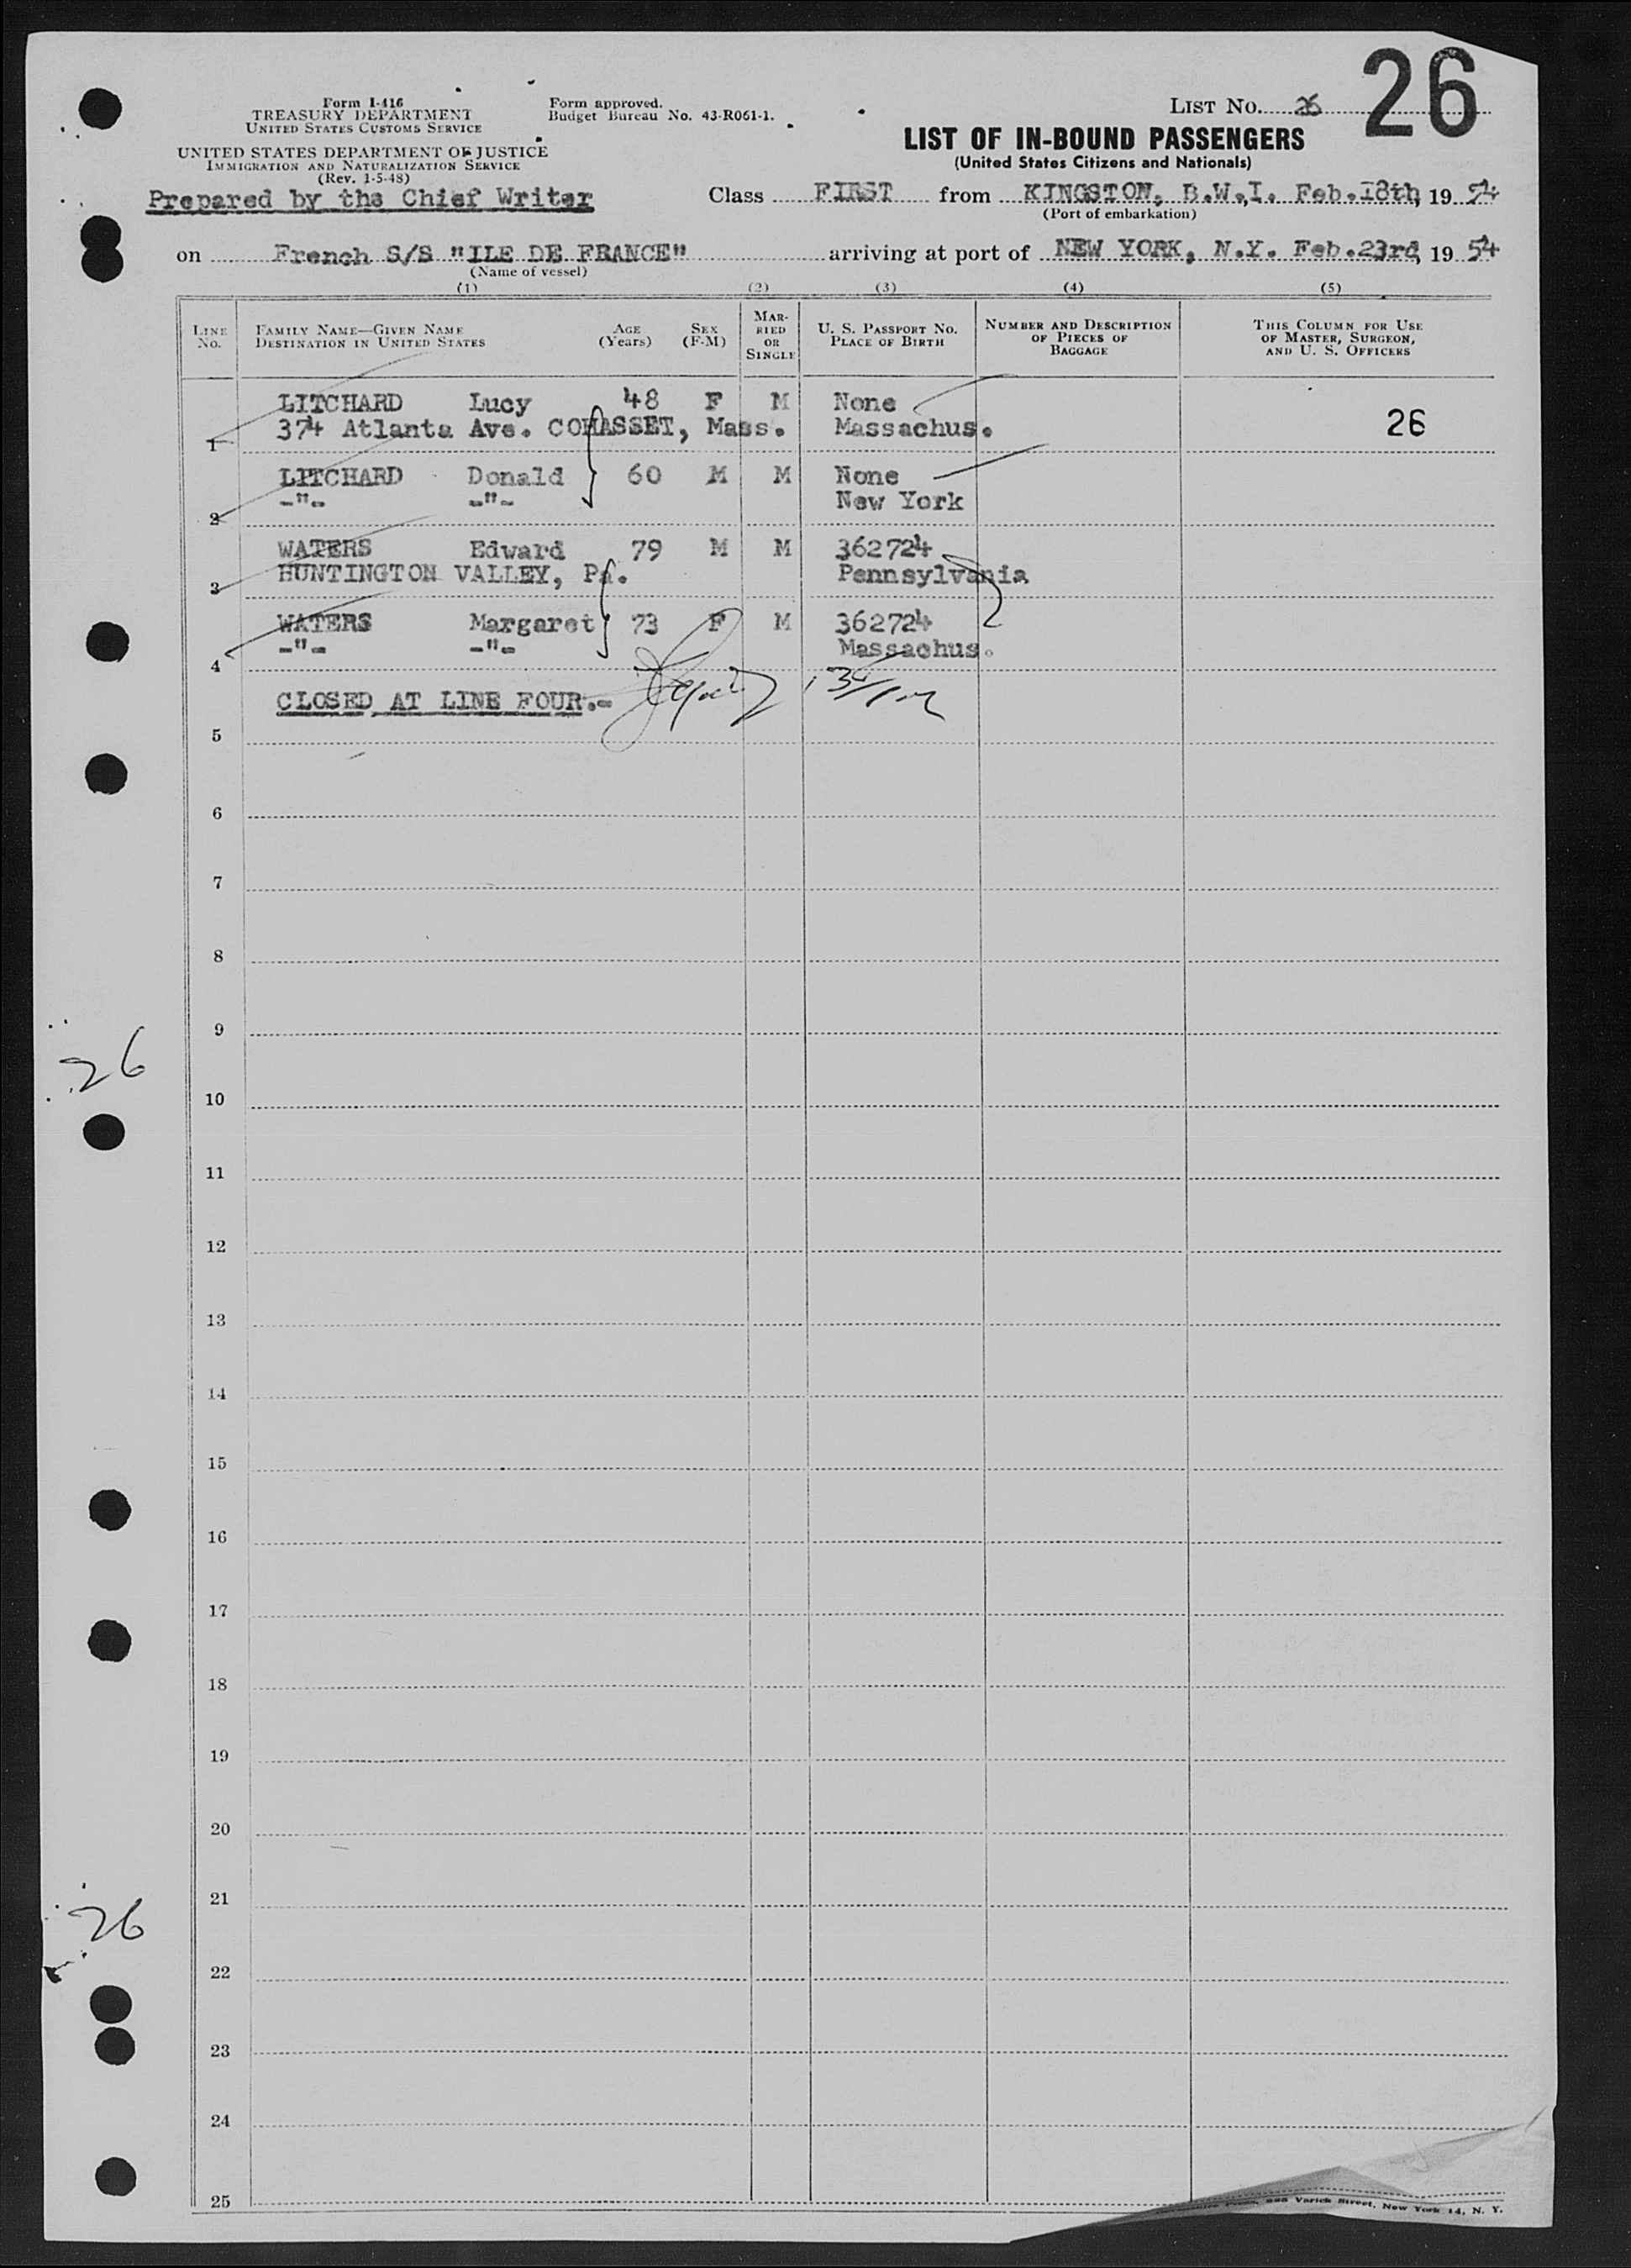 26
Form I-416
TREASURY DEPARTMENT
UNITED STATES CUSTOMS SERVICE
Form approved.
Budget Bureau No. 43-R061-1.
LIST NO. 26
UNITED STATES DEPARTMENT OF JUSTICE
IMMIGRATION AND NATURALIZATION SERVICE
(Rev. 1-5-48)
LIST OF IN-BOUND PASSENGERS
(United States Citizens and Nationals)
Prepared by the Chief Writer
Class FIRST from KINGSTON, B.W.I. Feb.18th, 19 54
(Port of embarkation)
on French S/S "ILE DE FRANCE" arriving at port of NEW YORK, N.Y. Feb.23rd, 19 54
(Name of vessel)
(1) (2) (3) (4) (5)
LINE NO.
FAMILY NAME—GIVEN NAME
DESTINATION IN UNITED STATES
AGE (Years)
SEX (F-M)
MARRIED OR SINGLE
U. S. PASSPORT NO.
PLACE OF BIRTH
NUMBER AND DESCRIPTION OF PIECES OF BAGGAGE
THIS COLUMN FOR USE OF MASTER, SURGEON, AND U. S. OFFICERS
LITCHARD Lucy 48 F M None
1 374 Atlanta Ave. COHASSET, Mass. Massachus. 26
LITCHARD Donald 60 M M None
2 -"- -"- New York
WATERS Edward 79 M M 362724
3 HUNTINGTON VALLEY, Pa. Pennsylvania
WATERS Margaret 73 F M 362724
4 -"- -"- Massachus.
CLOSED AT LINE FOUR.-
5
6
7
8
9
26
10
11
12
13
14
15
16
17
18
19
20
21
26
22
23
24
25
Varick Street, New York 14, N. Y.